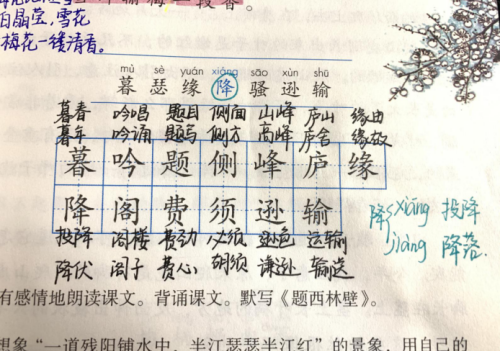 白晶莹,雪花
梅花一缕清香。
段香。
mù sè yuán xiáng sāo xùn shū
暮 瑟 缘 降 骚 逊 输
暮春 吟唱 题目 侧面 山峰 庐山 缘由
暮年 吟诵 题写 侧方 高峰 庐舍 缘故
暮 吟 题 侧 峰 庐 缘
降 阁 费 须 逊 输
投降 阁楼 费劲 必须 逊色 运输
降伏 阁子 费心 胡须 谦逊 输送
降 xiáng 投降
jiàng 降落.
有感情地朗读课文。背诵课文。默写《题西林壁》。
想象“一道残阳铺水中,半江瑟瑟半江红”的景象,用自己的